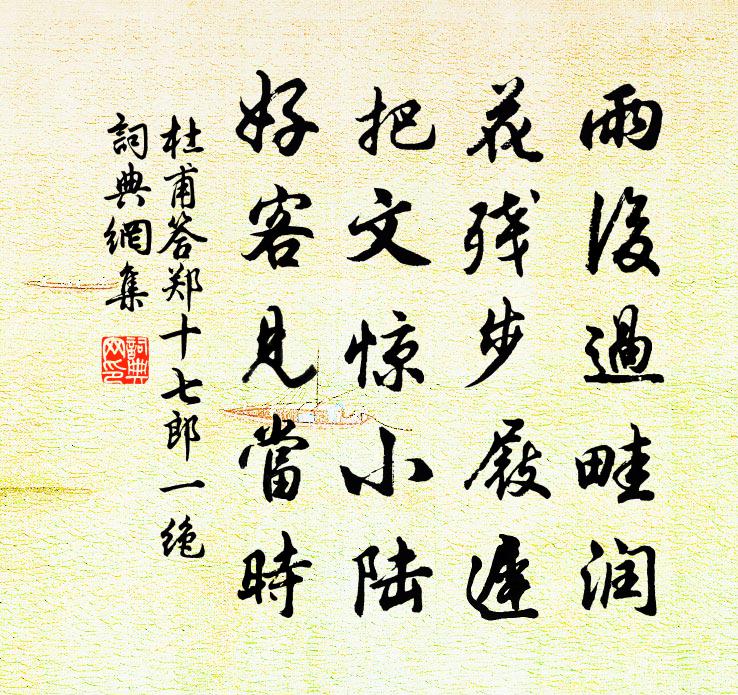 雨後過畦润
花残步屐遲
把文惊小陆
好客見當時
杜甫答郑十七郎一绝
詞典網集
詞典网印